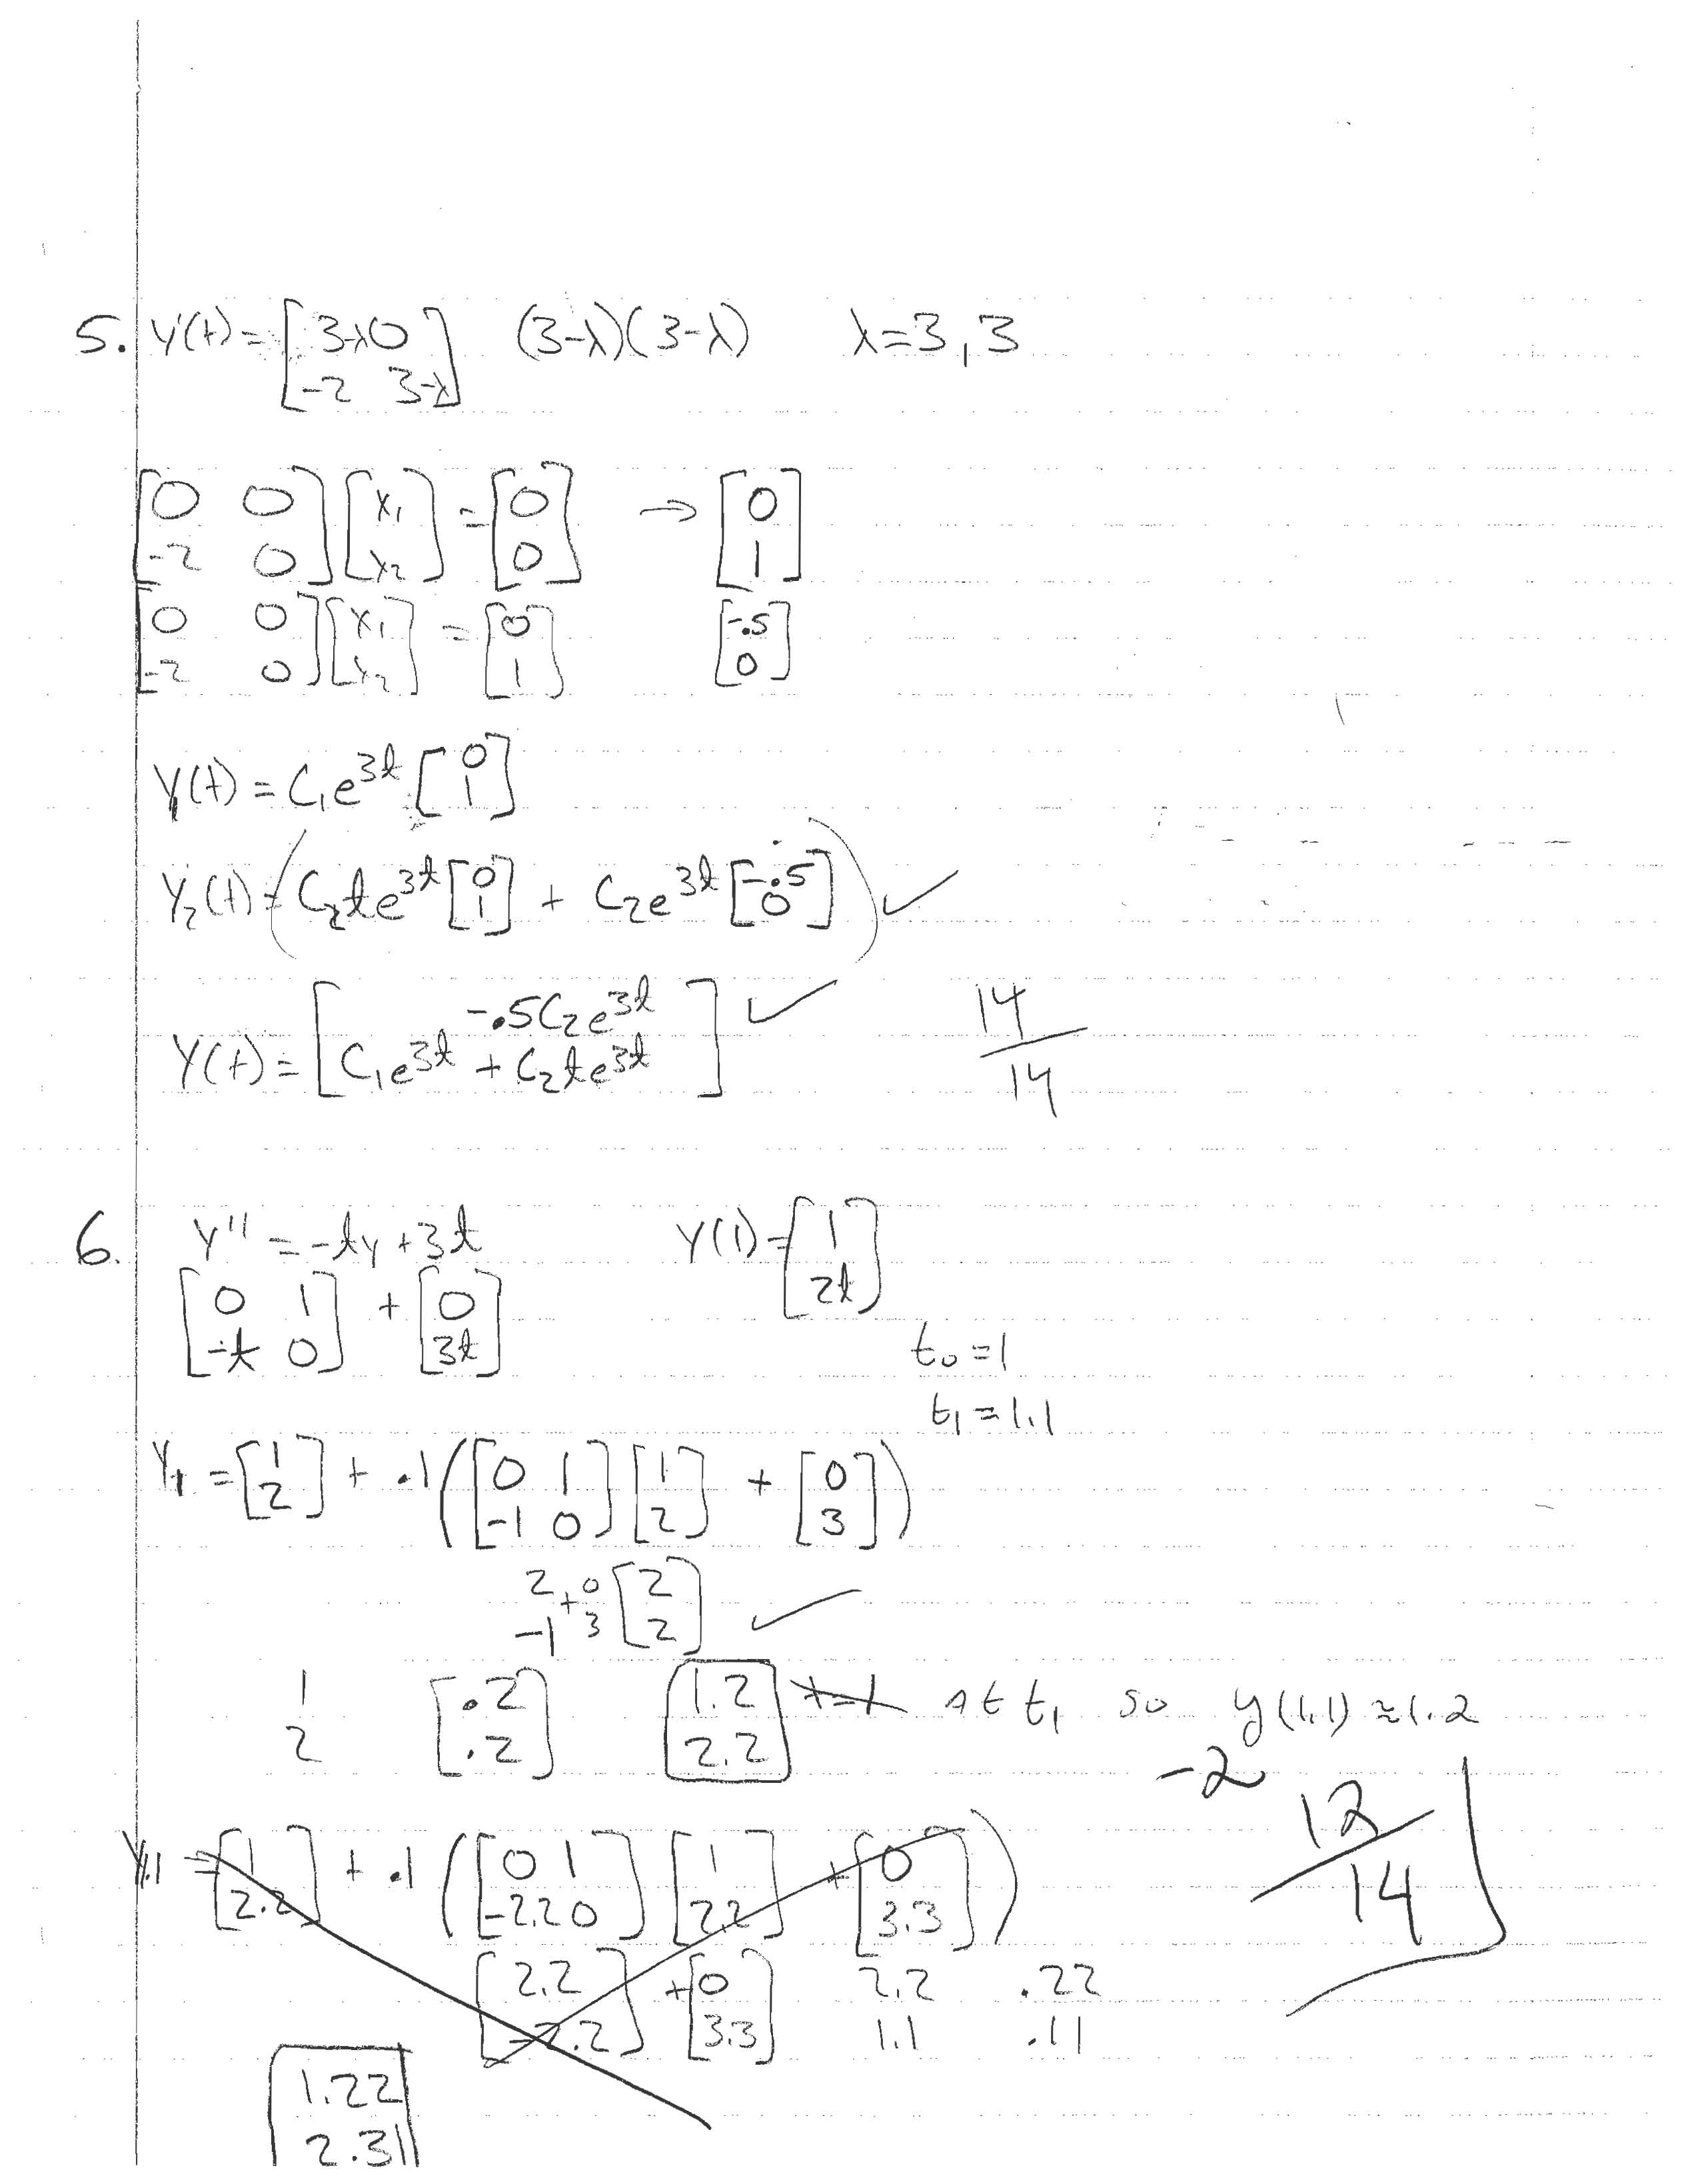 5. y'(t) = [3-λ 0 (3-λ)(3-λ) λ=3,3
-2 3-λ]
[0 0 [x₁ = [0 → [0
-2 0] x₂] 0] 1]
[0 0 [x₁ = [0 [-.5
-2 0] x₂] 1] 0]
Y(t) = C₁e^3t [0
1]
Y₂(t) = (C₂te^3t [0 1] + C₂e^3t [-.5 0]) ✓
Y(t) = [-.5C₂e^3t ✓
C₁e^3t + C₂te^3t]
14
14
6. y'' = -ty + 3t Y(1) = [1
2t]
[0 1 + [0
-t 0] 3t]
t₀ = 1
t₁ = 1.1
Y₁ = [1 2] + .1([0 1 -1 0] [1 2] + [0 3])
2 + 0 [2
-1 3 2] ✓
1 [.2 [1.2 t=1 at t₁ so y(1.1) ≈ 1.2
2 .2] 2.2]
-2
12
14
Y.1 = [1 2.2] + .1([0 1 -2.2 0] [1 2.2] + [0 3.3])
[2.2 + [0 2.2 .22
-2.2] 3.3] 1.1 .11
1.22
2.31